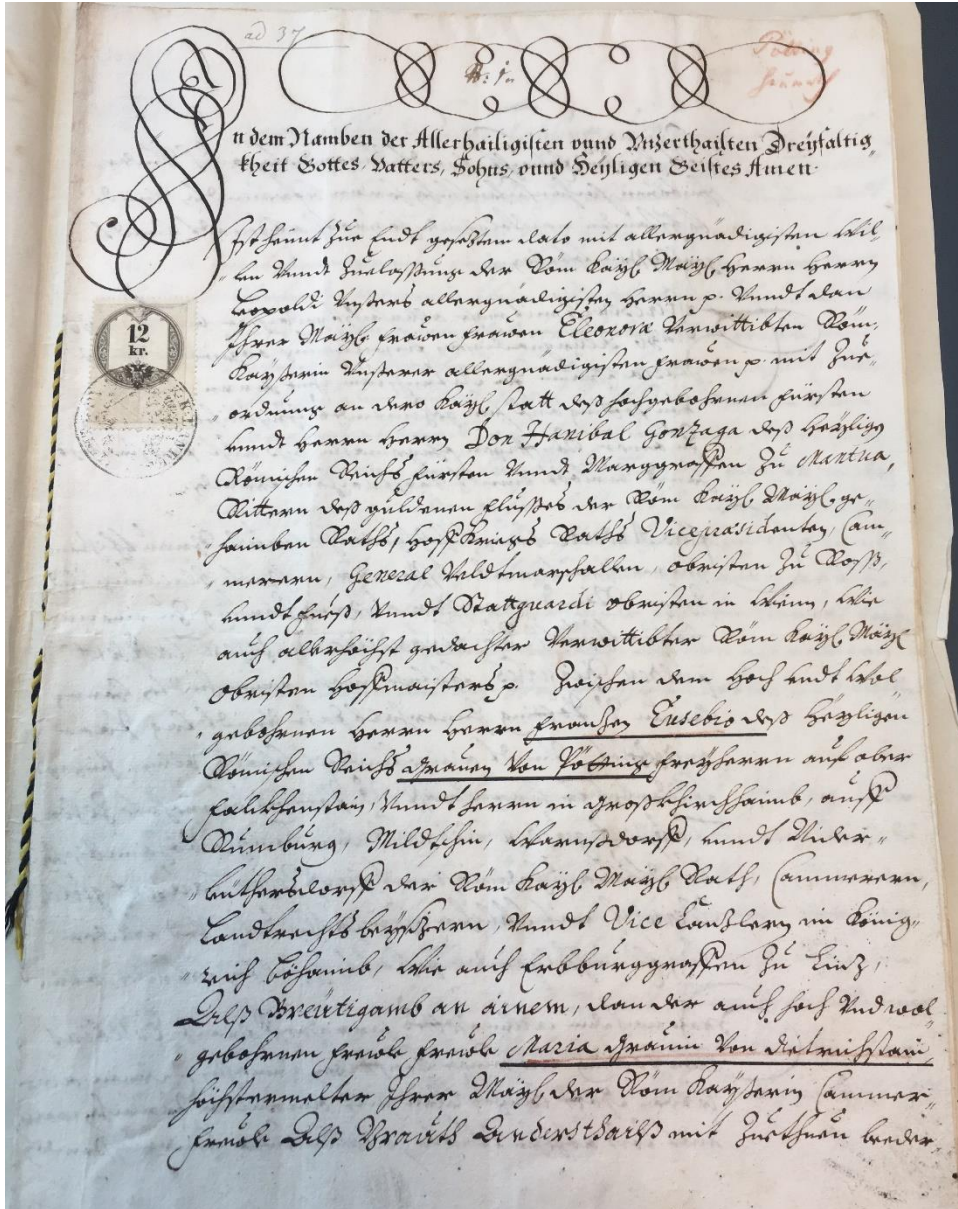 ad 37
No: 1.
Pötting
In dem Namben der Allerhailigisten vnnd Vnzerthailten Dreyfaltig„
kheit Gottes Vatters, Sohns, vnnd Heyligen Geistes Amen.
12
kr.
Ist heunt zue Endt gesetztem dato mit allergnädigisten Wil„
len Vnndt Zuelassung der Röm Kayl: Mayl: Herrn Herrn
Leopoldi Vnsers allergnädigisten Herrn p. Vnndt dan
Ihrer Mayl: Frawen Frawen Eleonoræ Verwittibten Röm:
Kayserin Vnserer allergnädigisten Frawen p. mit Zue„
ordnung an dero Kayl: statt deß hochgebohrnen Fürsten
vnndt Herrn Herrn Don Hanibal Gonzaga deß Heyligen
Römischen Reichs Fürsten Vnndt Marggraffen Zu Mantua,
Rittern deß guldenen Flußes der Röm Kayl: Mayl: ge„
haimben Raths, Hoff Kriegs Raths Vicepræsidenten, Cam„
merern, General Veldtmarschallen, obristen Zu Roß,
vnndt Fueß, Vnndt Stattguardi obristen in Wienn, Wie
auch allerhöchst gedachter Verwittibter Röm Kayl: Mayl:
obristen Hoffmaisters p. Zwischen dem Hoch vndt Wol
gebohrnen Herrn Herrn Frantzen Eusebio deß Heyligen
Römischen Reichs Grauen Von Pötting Freyherrn auf ober
Falckhenstain, Vnndt Herrn in Großkhirchhaimb, auff
Rumburg, Mildtschin, Warnßdorff, vnndt Nider„
leuthersdorff der Röm Kayl: Mayl: Rath, Cammerern,
Landtrechts beysitzern, Vnndt Vice Cantzlern im König„
reich Böhaimb, Wie auch Erbburggraffen Zu Lintz,
Alß Breütigamb an ainem, dan der auch hoch Vnd wol„
gebohrnen Frewle Frewle Maria Gräuin Von Dietrichstain,
höchstermelter Ihrer Mayl: der Röm Kayserin Cammer„
Frewle Alß Brauth Andersthailß mit Zuethuen beeder